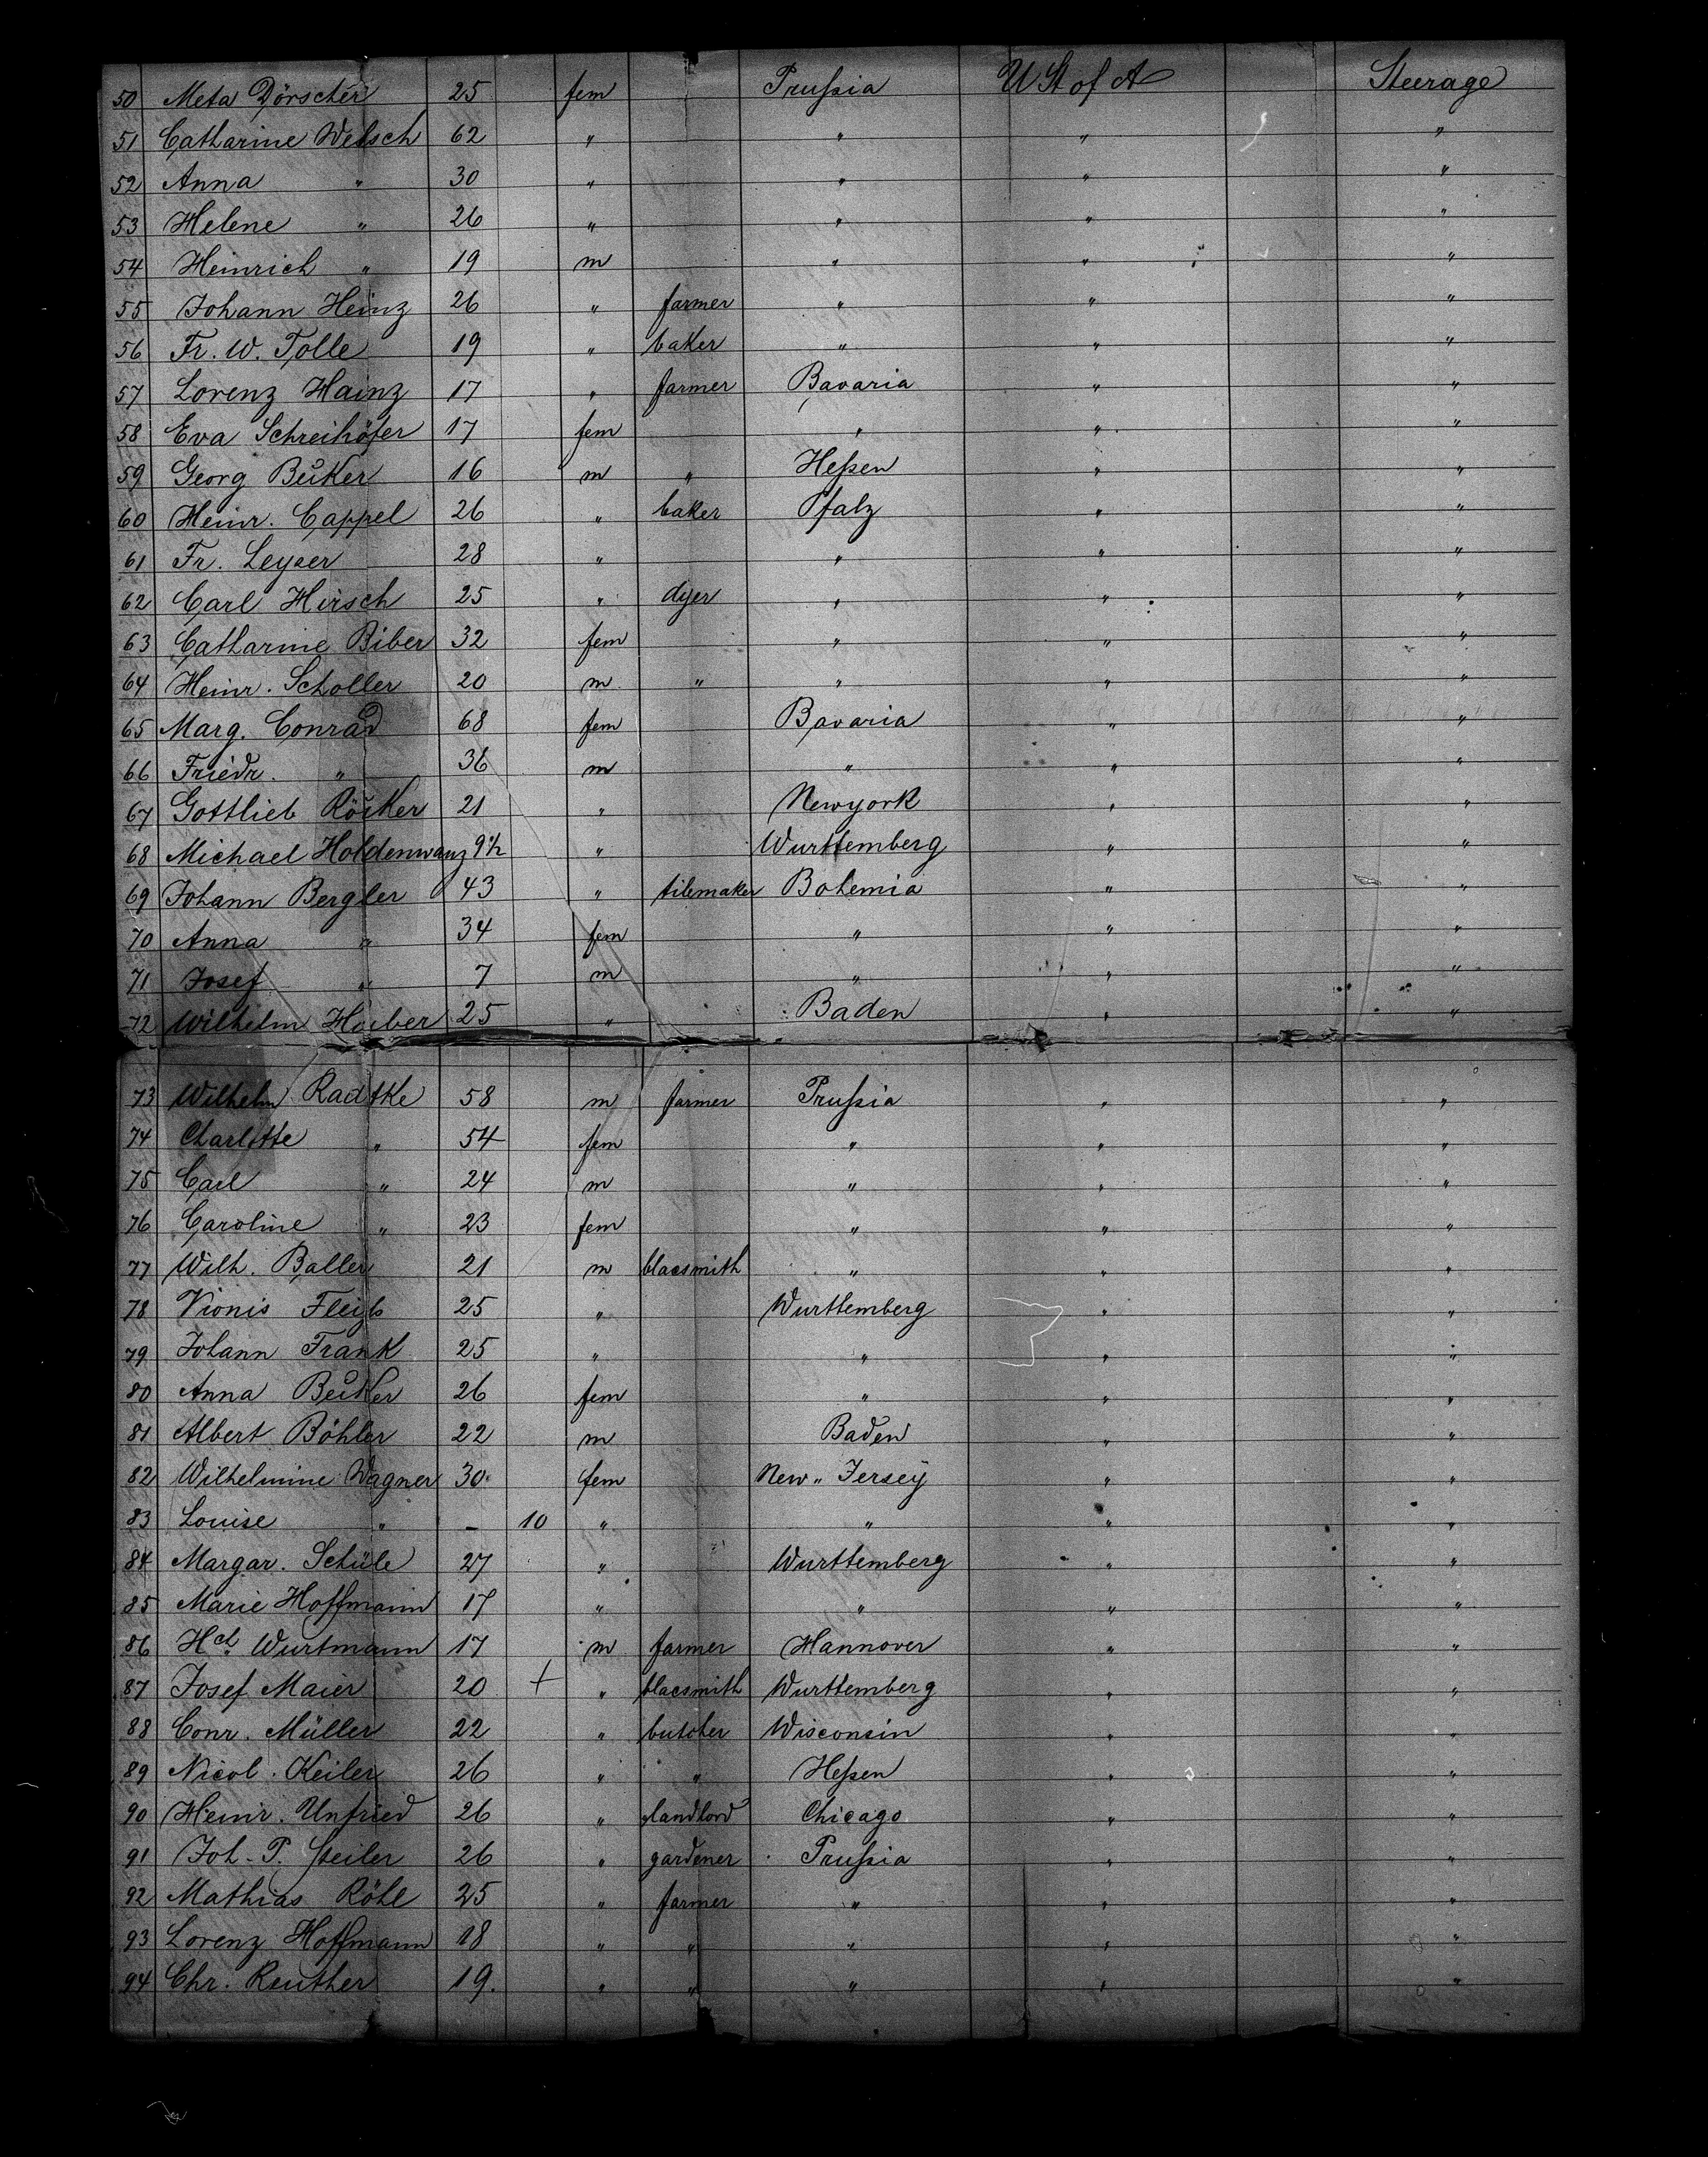 50 Meta Dörscher 25 fem Prußia U St of A Steerage
51 Catharine Welsch 62 " " " "
52 Anna " 30 " " " "
53 Helene " 26 " " " "
54 Heinrich " 19 m " " "
55 Johann Heinz 26 " farmer " " "
56 Fr. W. Tolle 19 " baker " " "
57 Lorenz Hainz 17 " farmer Bavaria " "
58 Eva Schreihöfer 17 fem " " "
59 Georg Beuker 16 m " Heßen " "
60 Heinr. Cappel 26 " baker Pfalz " "
61 Fr. Leyser 28 " " " "
62 Carl Hirsch 25 " dyer " " "
63 Catharine Biber 32 fem " " "
64 Heinr. Scholler 20 m " " " "
65 Marg. Conrad 68 fem Bavaria " "
66 Friedr. " 36 m " " "
67 Gottlieb 21 " Newyork " "
68 Michael Holdenwanz 9½ " Wurttemberg " "
69 Johann Bergler 43 " tilemaker Bohemia " "
70 Anna " 34 fem " " "
71 Josef " 7 m " " "
72 Wilhelm 25 " Baden " "
73 Wilhelm Radtke 58 m farmer Prußia " "
74 Charlotte " 54 fem " " "
75 Carl " 24 m " " "
76 Caroline " 23 fem " " "
77 Wilh. Baller 21 m blacsmith " " "
78 25 " Wurttemberg " "
79 Johann Frank 25 " " " "
80 Anna Beuker 26 fem " " "
81 Albert Böhler 22 m Baden " "
82 Wilhelmine Wagner 30 fem New " Jersey " "
83 Louise " – 10 " " " "
84 Margar. Schüle 27 " Wurttemberg " "
85 Marie Hoffmann 17 " " " "
86 Hch. Wurtmann 17 m farmer Hannover " "
87 Josef Maier 20 + " blacsmith Wurttemberg " "
88 Conr. Müller 22 " butcher Wisconsin " "
89 Nicol. Keiler 26 " " Heßen " "
90 Heinr. Unfried 26 " landlord Chicago " "
91 Joh. P. Steiler 26 " gardener Prußia " "
92 Mathias Röhl 25 " farmer " " "
93 Lorenz Hoffmann 18 " " " " "
94 Chr. Reuther 19. " " " " "